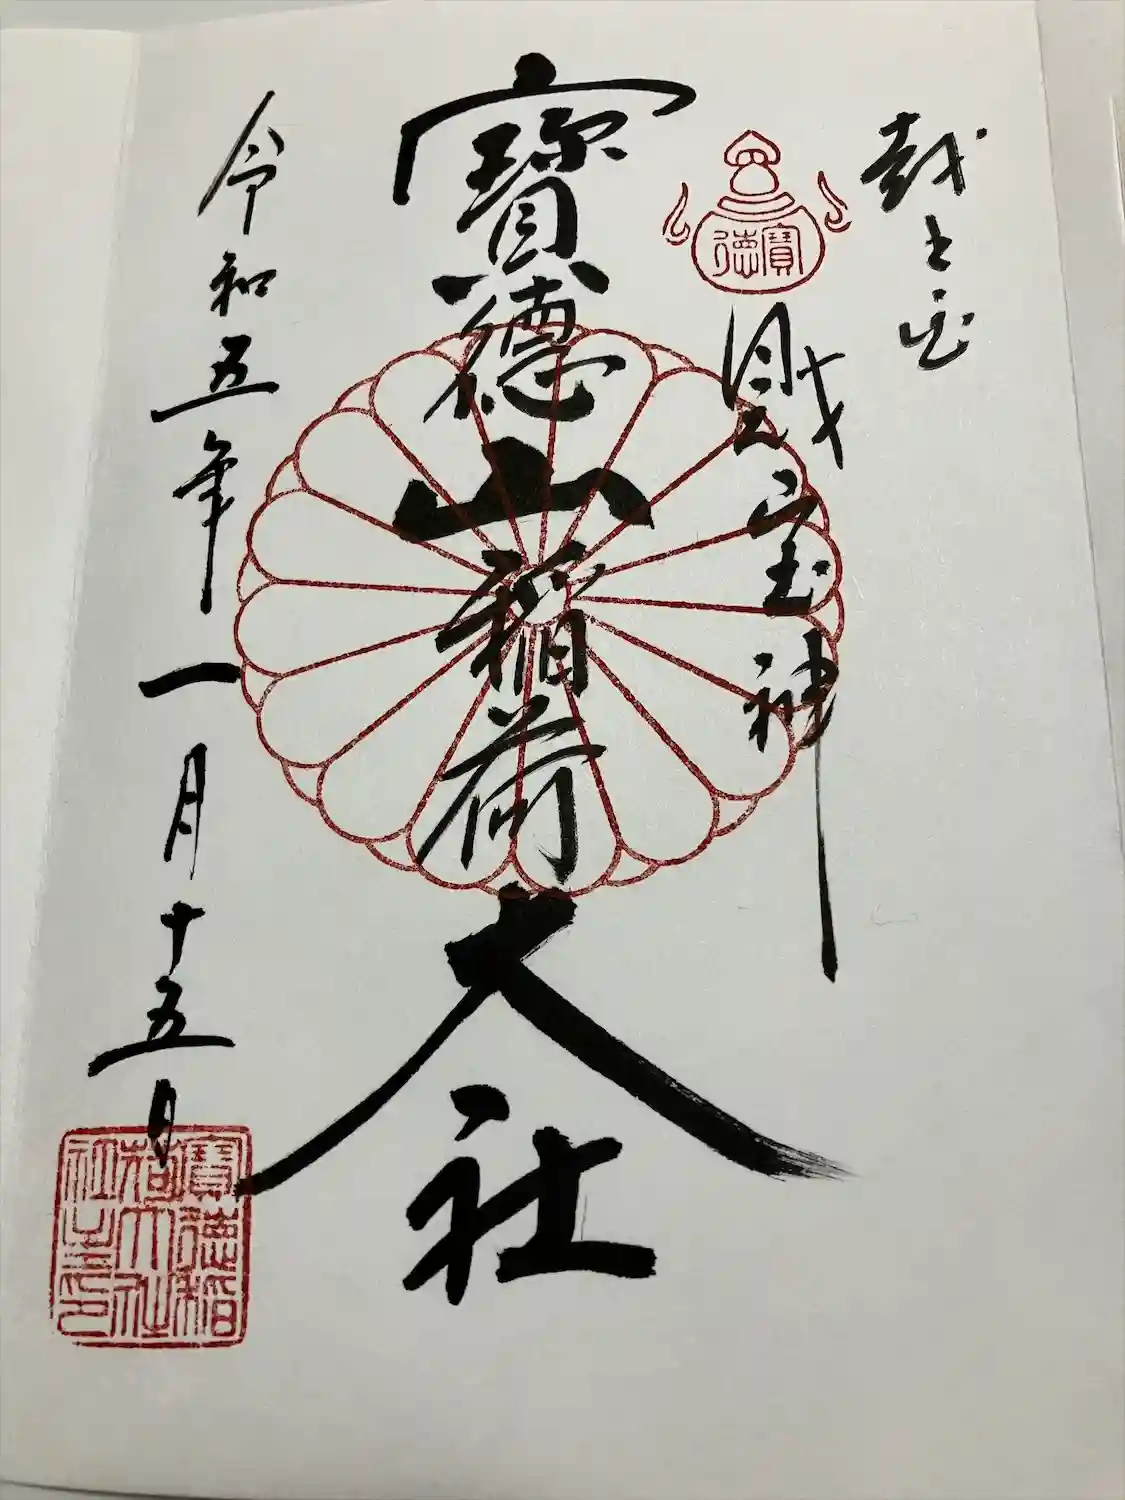 越之
寶徳
宝神
寶德山稲荷大社
令和五年一月十五日
寶徳稲
荷大神
社之印